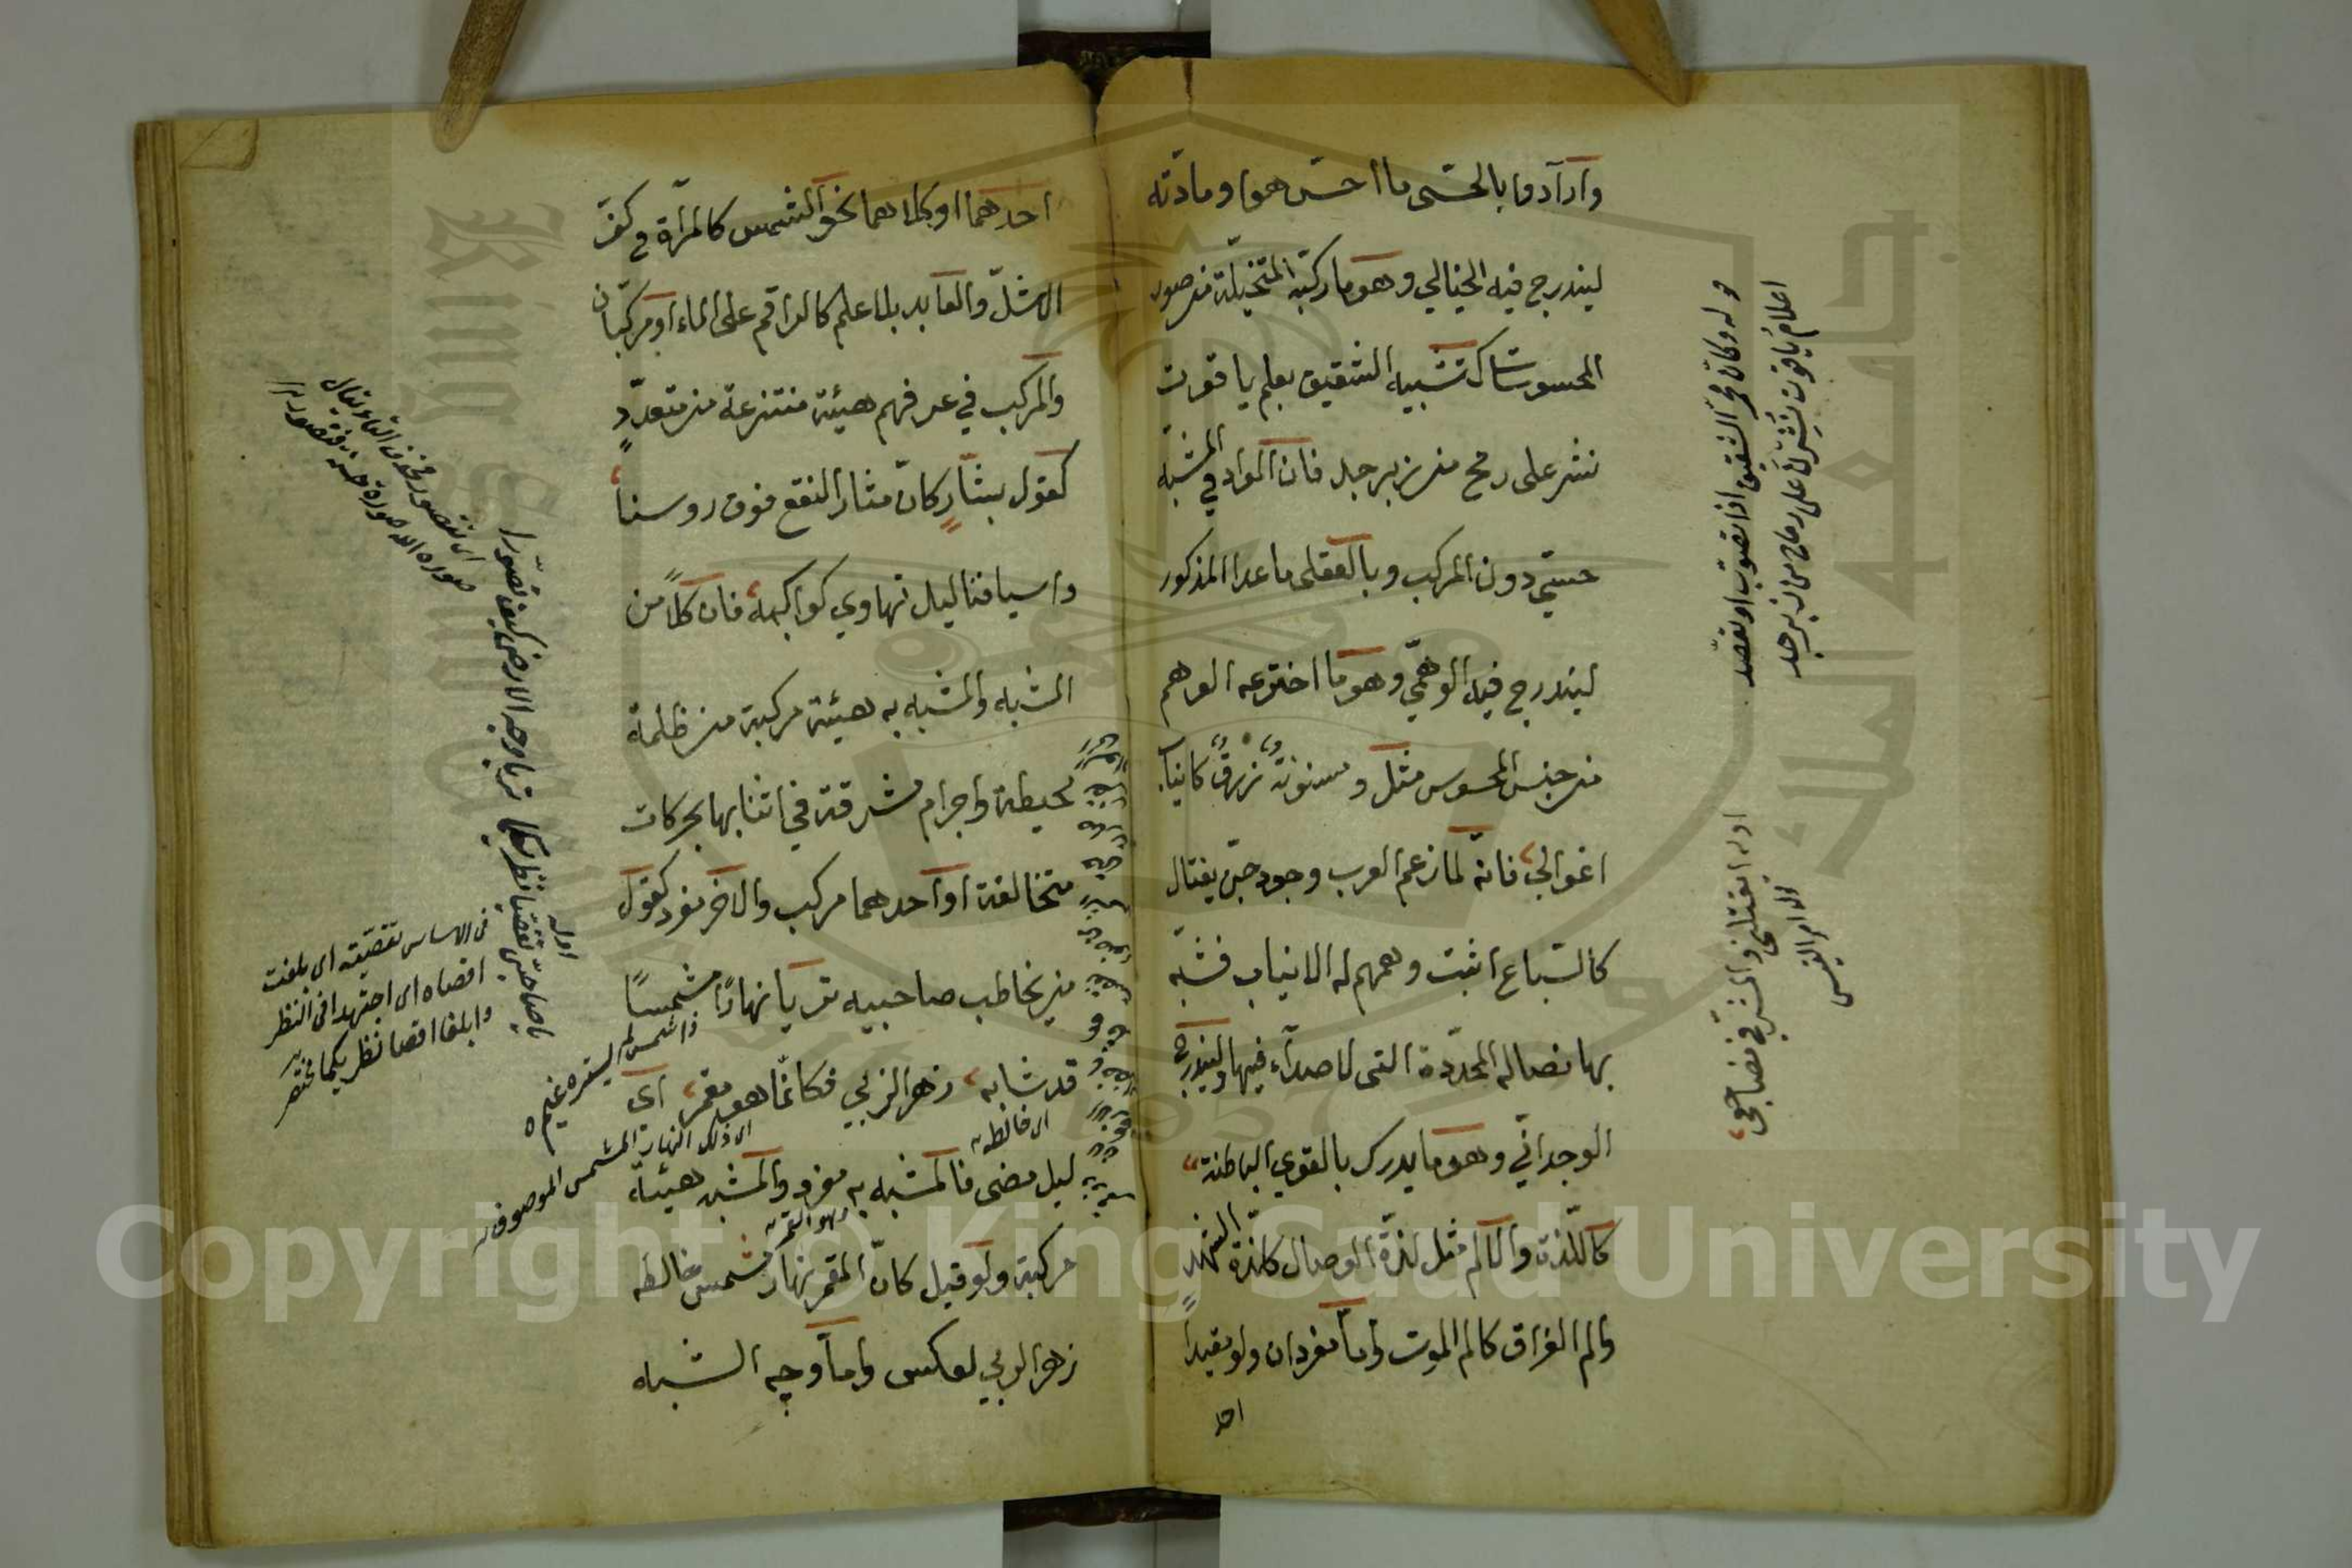 وارادوا بالحسّى ما احسّ هوا ومادته
ليندرج فيه الخيالي وهو ما ركبته المتخيّلة من صور
المحسوسات كتشبيه الشقيق بعلم ياقوت
نشر على رمح من زبرجد فان المواد في المشبّه
حسّي دون المركب وبالعقلى ما عدا المذكور
ليندرج فيه الوهمّي وهو ما اخترعه الوهم
من جنس المحسوس مثل ومسنونة زرق كانياب
اغوالي فانّه لما زعم العرب وجود جنّ يغتال
كالسّباع اثبت وهمهم له الانياب فشبّه
بها نصاله المحدّدة التى لا صداء فيها وليندرج
الوجدانّي وهو ما يدرك بالقوي الباطنة
كاللّذة والالم مثل لذّة الوصال كلذّة الشهد
والم الفراق كالم الموت وامّا مفردان ولو مقيداً
احد
قوله وكانّ محمّر الشقيق اذا تصوّب او تصعّد
اعلام ياقوت نُشِرْنَ على رماح من زبرجد
اوله ايقتلنى والمشرفي مضاجعى
امر القيس
احدهما او كلاهما نحو الشمس كالمرآة في كفّ
الاشلّ والعابد بلا علم كالراقم على الماء او مركبان
والمركب في عرفهم هيئة منتزعة من متعدّدٍ
كقول بشّار كانّ مثار النقع فوق روسنا
واسيافنا ليل تهاوي كواكبه فان كلاً من
الشبه والمشبه به هيئة مركبة من ظلمة
محيطة واجرام مشرقة في اثنايها بحركات
متخالفة او احدهما مركب والاخر مفرد كقول
من يخاطب صاحبيه تريا نهارًا مشمسًا
قد شابه زهر الربي فكانّما هو مقمر اى
ليل مضى فالمشبه به مفرد والمشبه هيئة
مركبة ولو قيل كانّ المقمر نهار مشمس خالطه
زهر الربي لعكس وامّا وجه الشبه
ذا شمس لم يستره غيم
اى خالطه
اى ذلك النهار المشمس الموصوف
وهو القمر
اوله
يا صاحبيّ تقصّيا نظريكما تريا وجوه الارض كيف تصوّرا
اى تتصور فحذف التاء يقال
فى الاساس تقصّيته اى بلغت
اقصاه اى اجتهدا فى النظر
وابلغا اقصا نظريكما مختصر